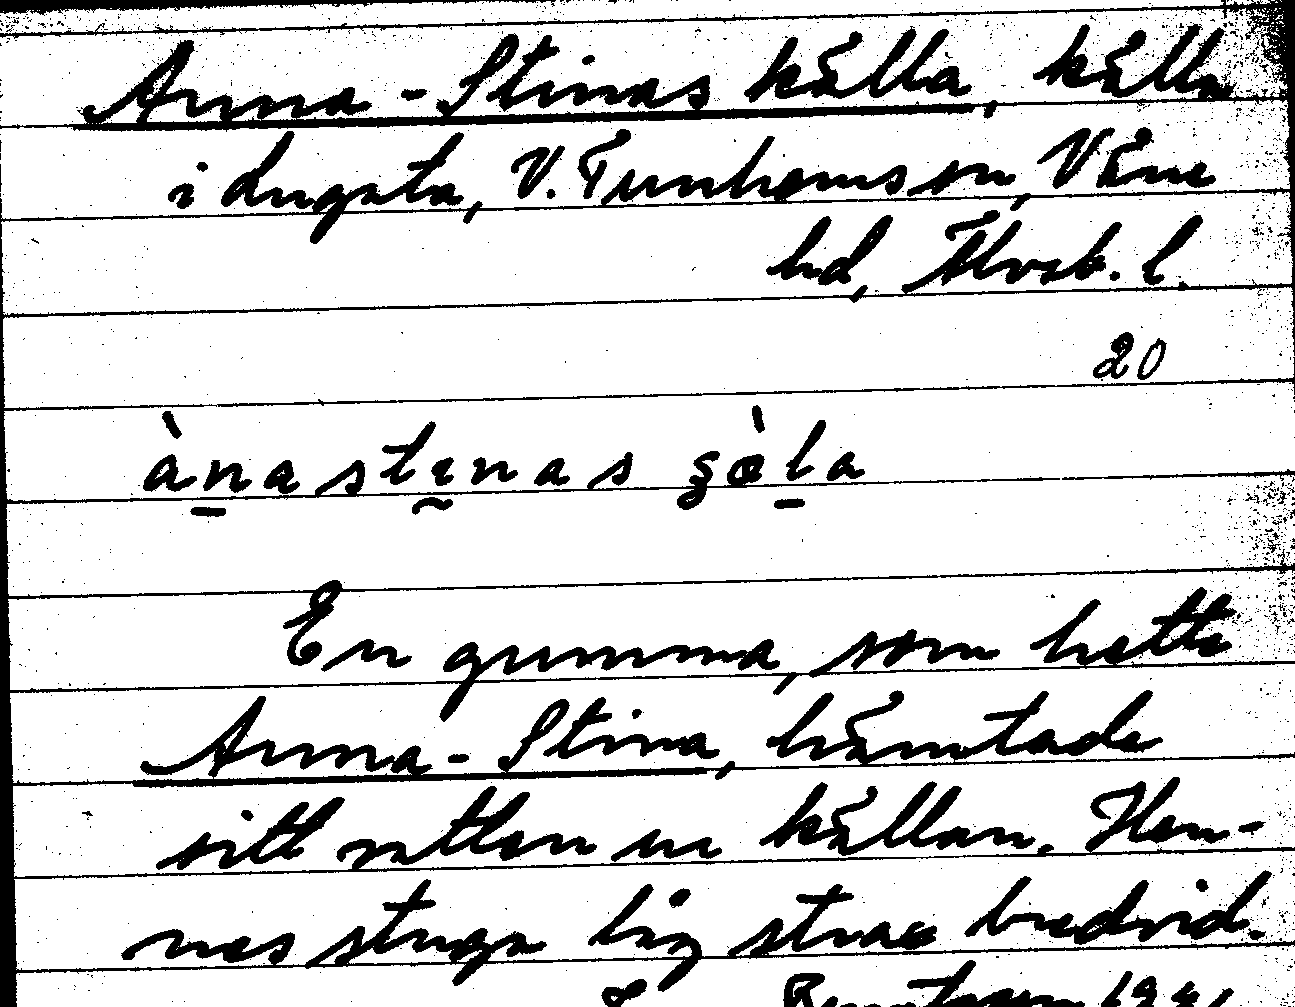 Anna-Stinas källa, källa
i Lugnta, V. Tunhems sn, Väne
hd, Älvsb. l.
20
ànastinas ʒæ̀la
En gumma, som hette
Anna-Stina, hämtade
sitt vatten ur källan. Hen-
nes stuga låg strax bredvid.